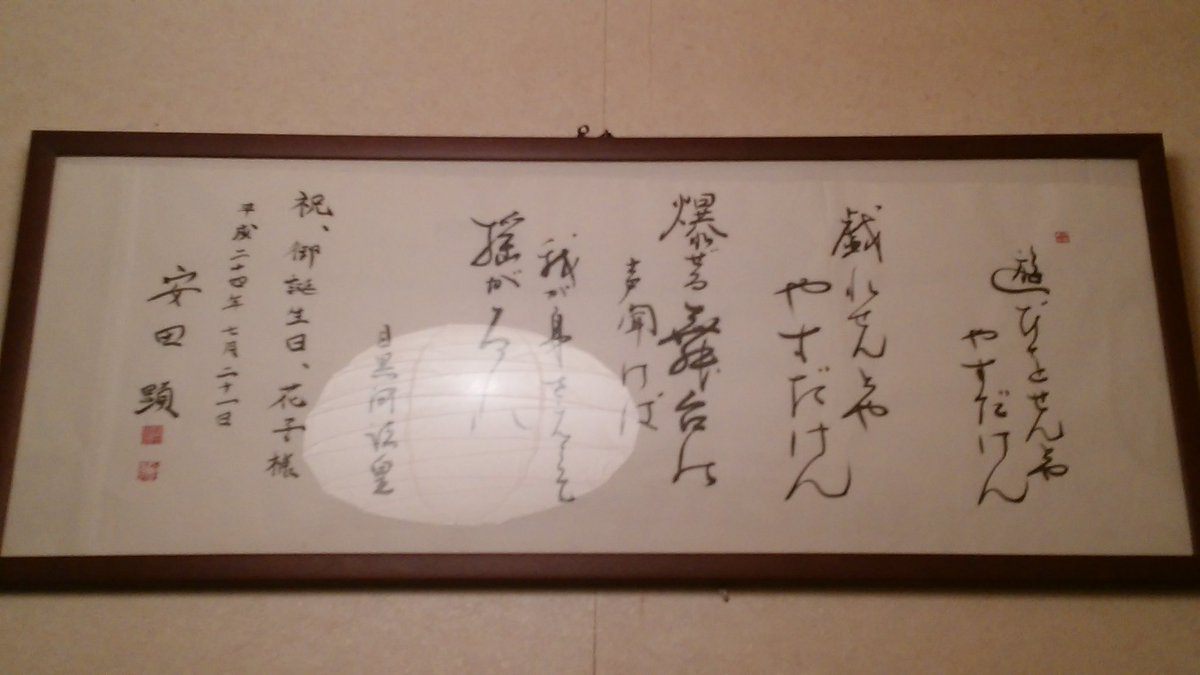 遊びをせんとや
やすだけん
戯れせんとや
やすだけん
爆ぜる舞台の
声聞けば
我が身さへこそ
揺がるれ
目黒河法皇
祝、御誕生日、花子様
平成二十四年七月二十一日
安田顕